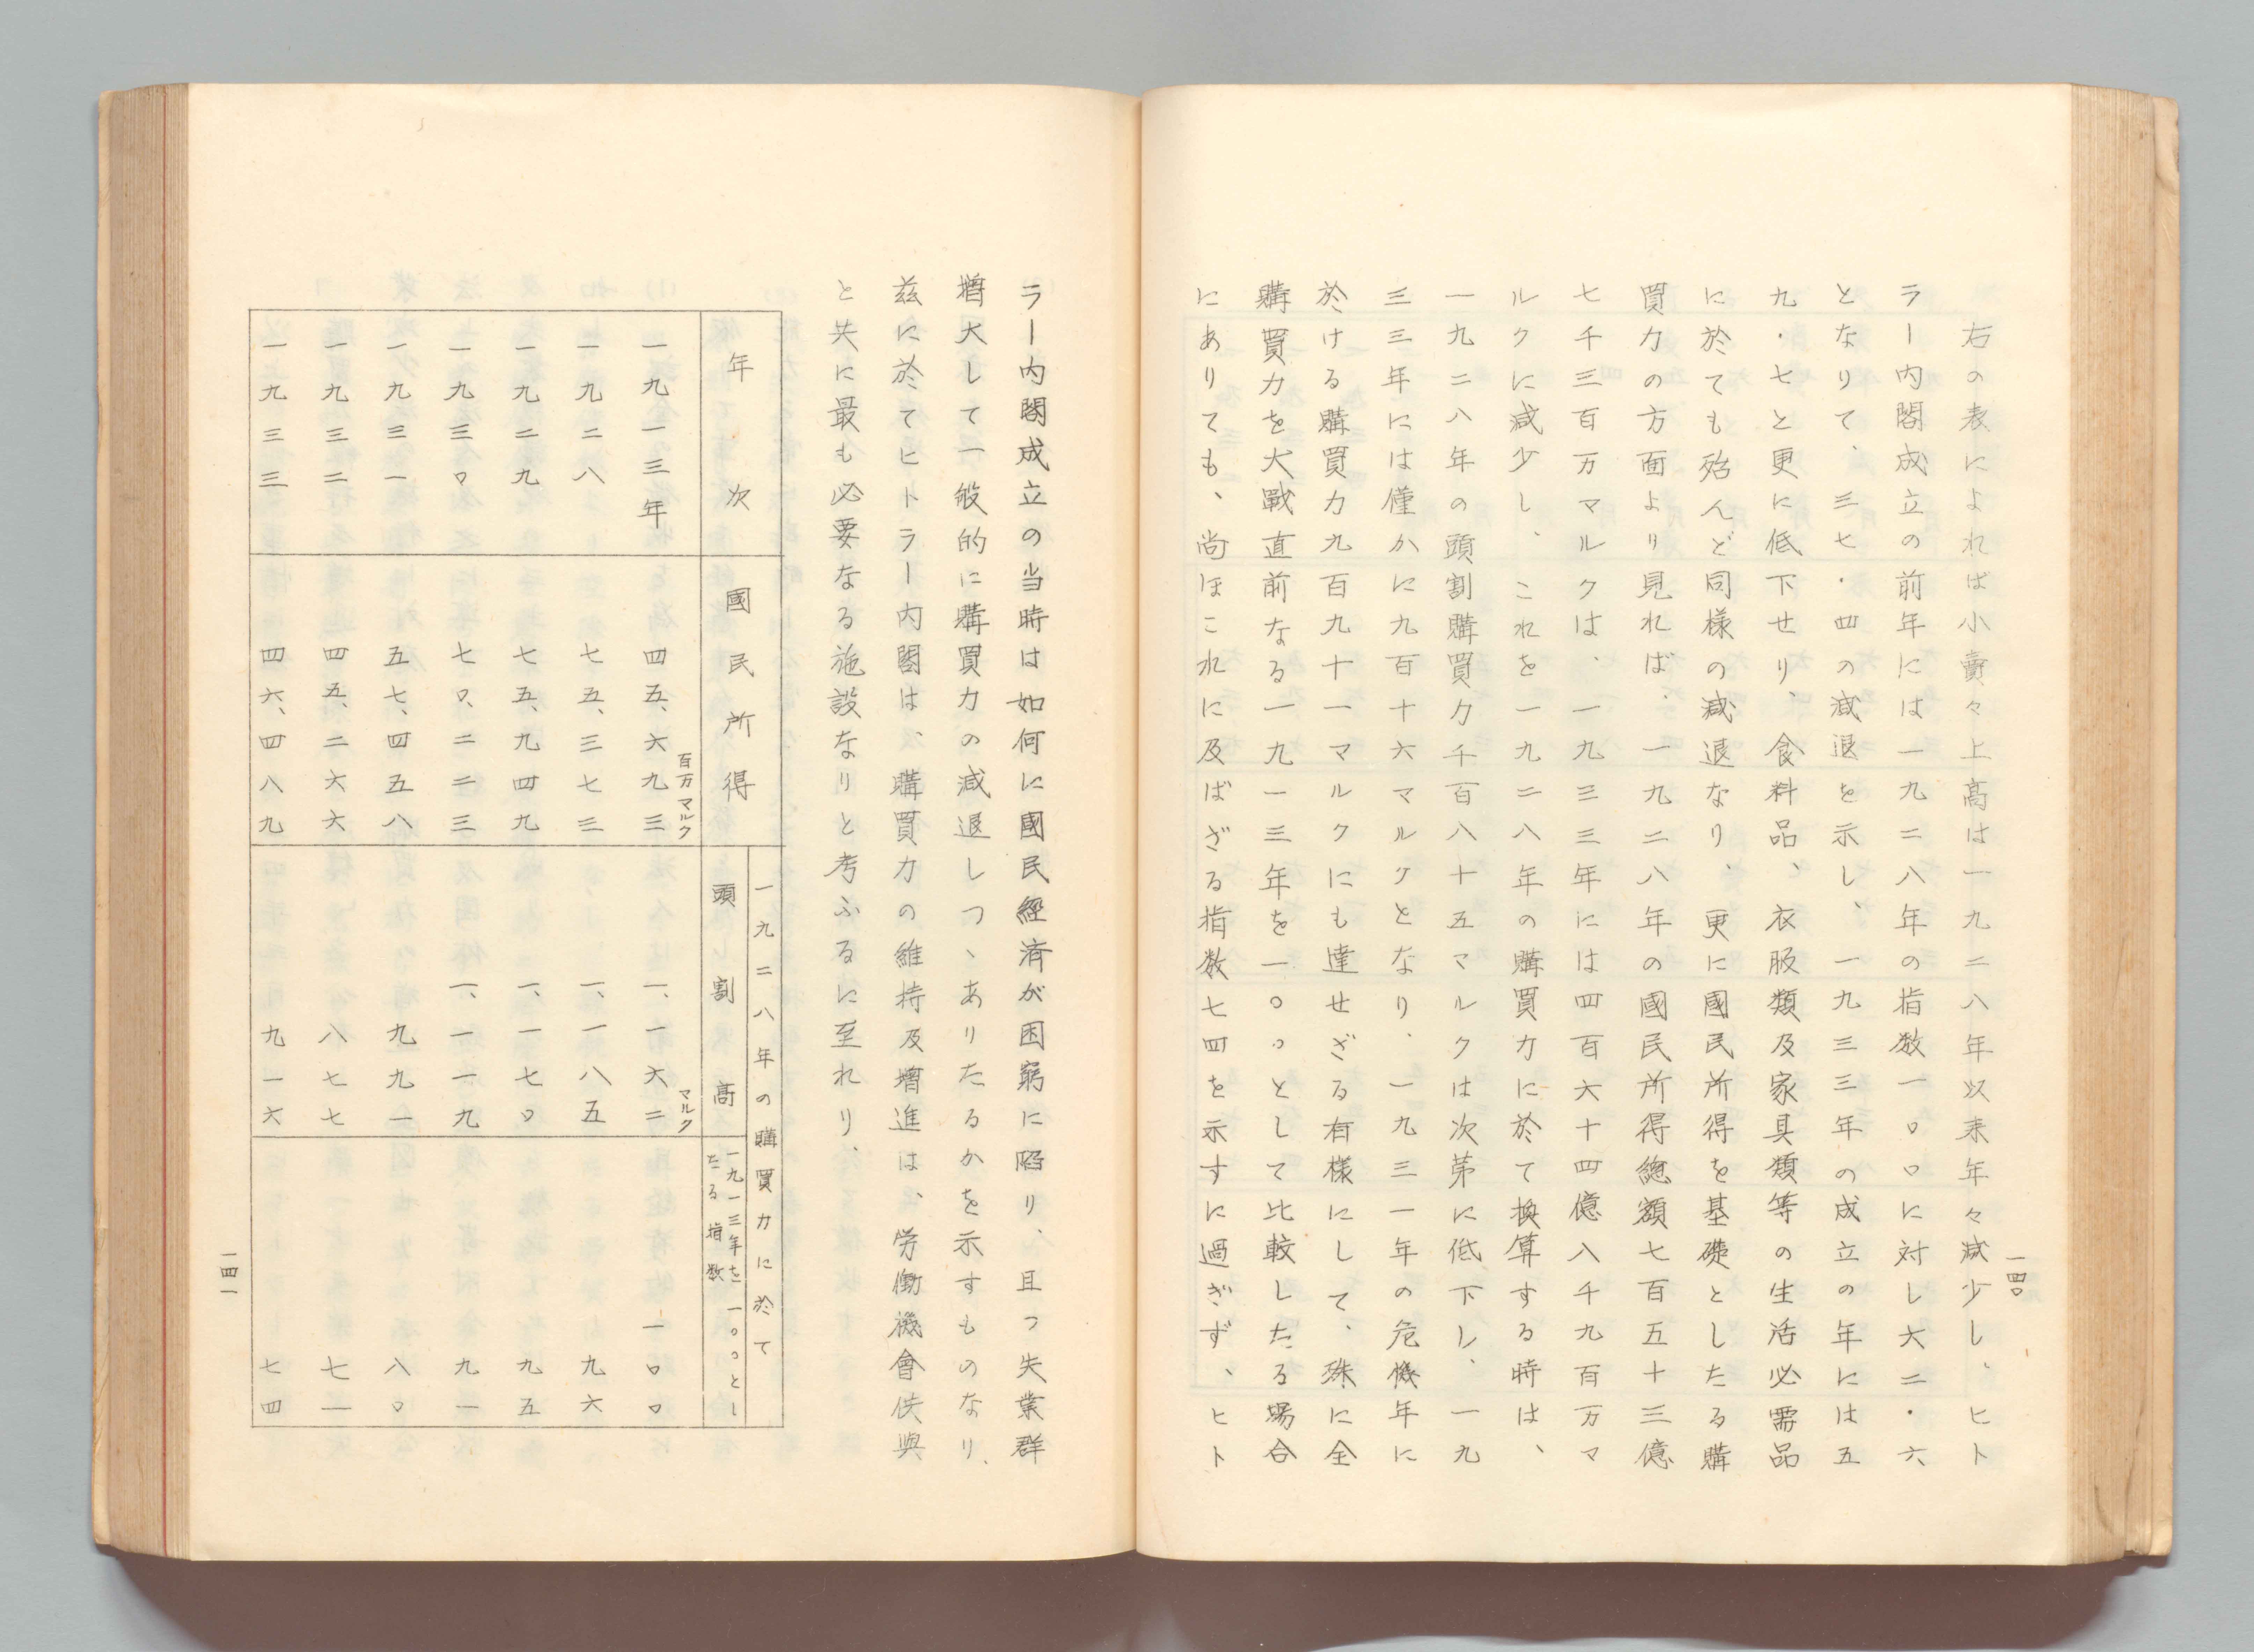 一四〇
右の表によれば小賣々上高は一九二八年以来年々減少し、ヒト
ラー内閣成立の前年には一九二八年の指数一〇〇に対し六二・六
となりて、三七・四の減退を示し、一九三三年の成立の年には五
九・七と更に低下せり、食料品、衣服類及家具類等の生活必需品
に於ても殆んど同様の減退なり、更に國民所得を基礎としたる購
買力の方面より見れば、一九二八年の國民所得總額七百五十三億
七千三百万マルクは、一九三三年には四百六十四億八千九百万マ
ルクに減少し、これを一九二八年の購買力に於て換算する時は、
一九二八年の頭割購買力千百八十五マルクは次第に低下し、一九
三三年には僅かに九百十六マルクとなり、一九三一年の危機年に
於ける購買力九百九十一マルクにも達せざる有様にして、殊に全
購買力を大戰直前なる一九一三年を一〇〇として比較したる場合
にありても、尚ほこれに及ばざる指数七四を示すに過ぎず、ヒト
ラー内閣成立の当時は如何に國民經済が困窮に陷り、且つ失業群
増大して一般的に購買力の減退しつゝありたるかを示すものなり、
茲に於てヒトラー内閣は、購買力の維持及増進は、労働機會供與
と共に最も必要なる施設なりと考ふるに至れり、
年次 國民所得 一九二八年の購買力に於て
頭割高 一九一三年を一〇〇とし
たる指数
百万マルク マルク
一九一三年 四五、六九三 一、一六二 一〇〇
一九二八 七五、三七三 一、一八五 九六
一九二九 七五、九四九 一、一七〇 九五
一九三〇 七〇、二二三 一、一一九 九一
一九三一 五七、四五八 九九一 八〇
一九三二 四五、二六六 八七七 七一
一九三三 四六、四八九 九一六 七四
一四一